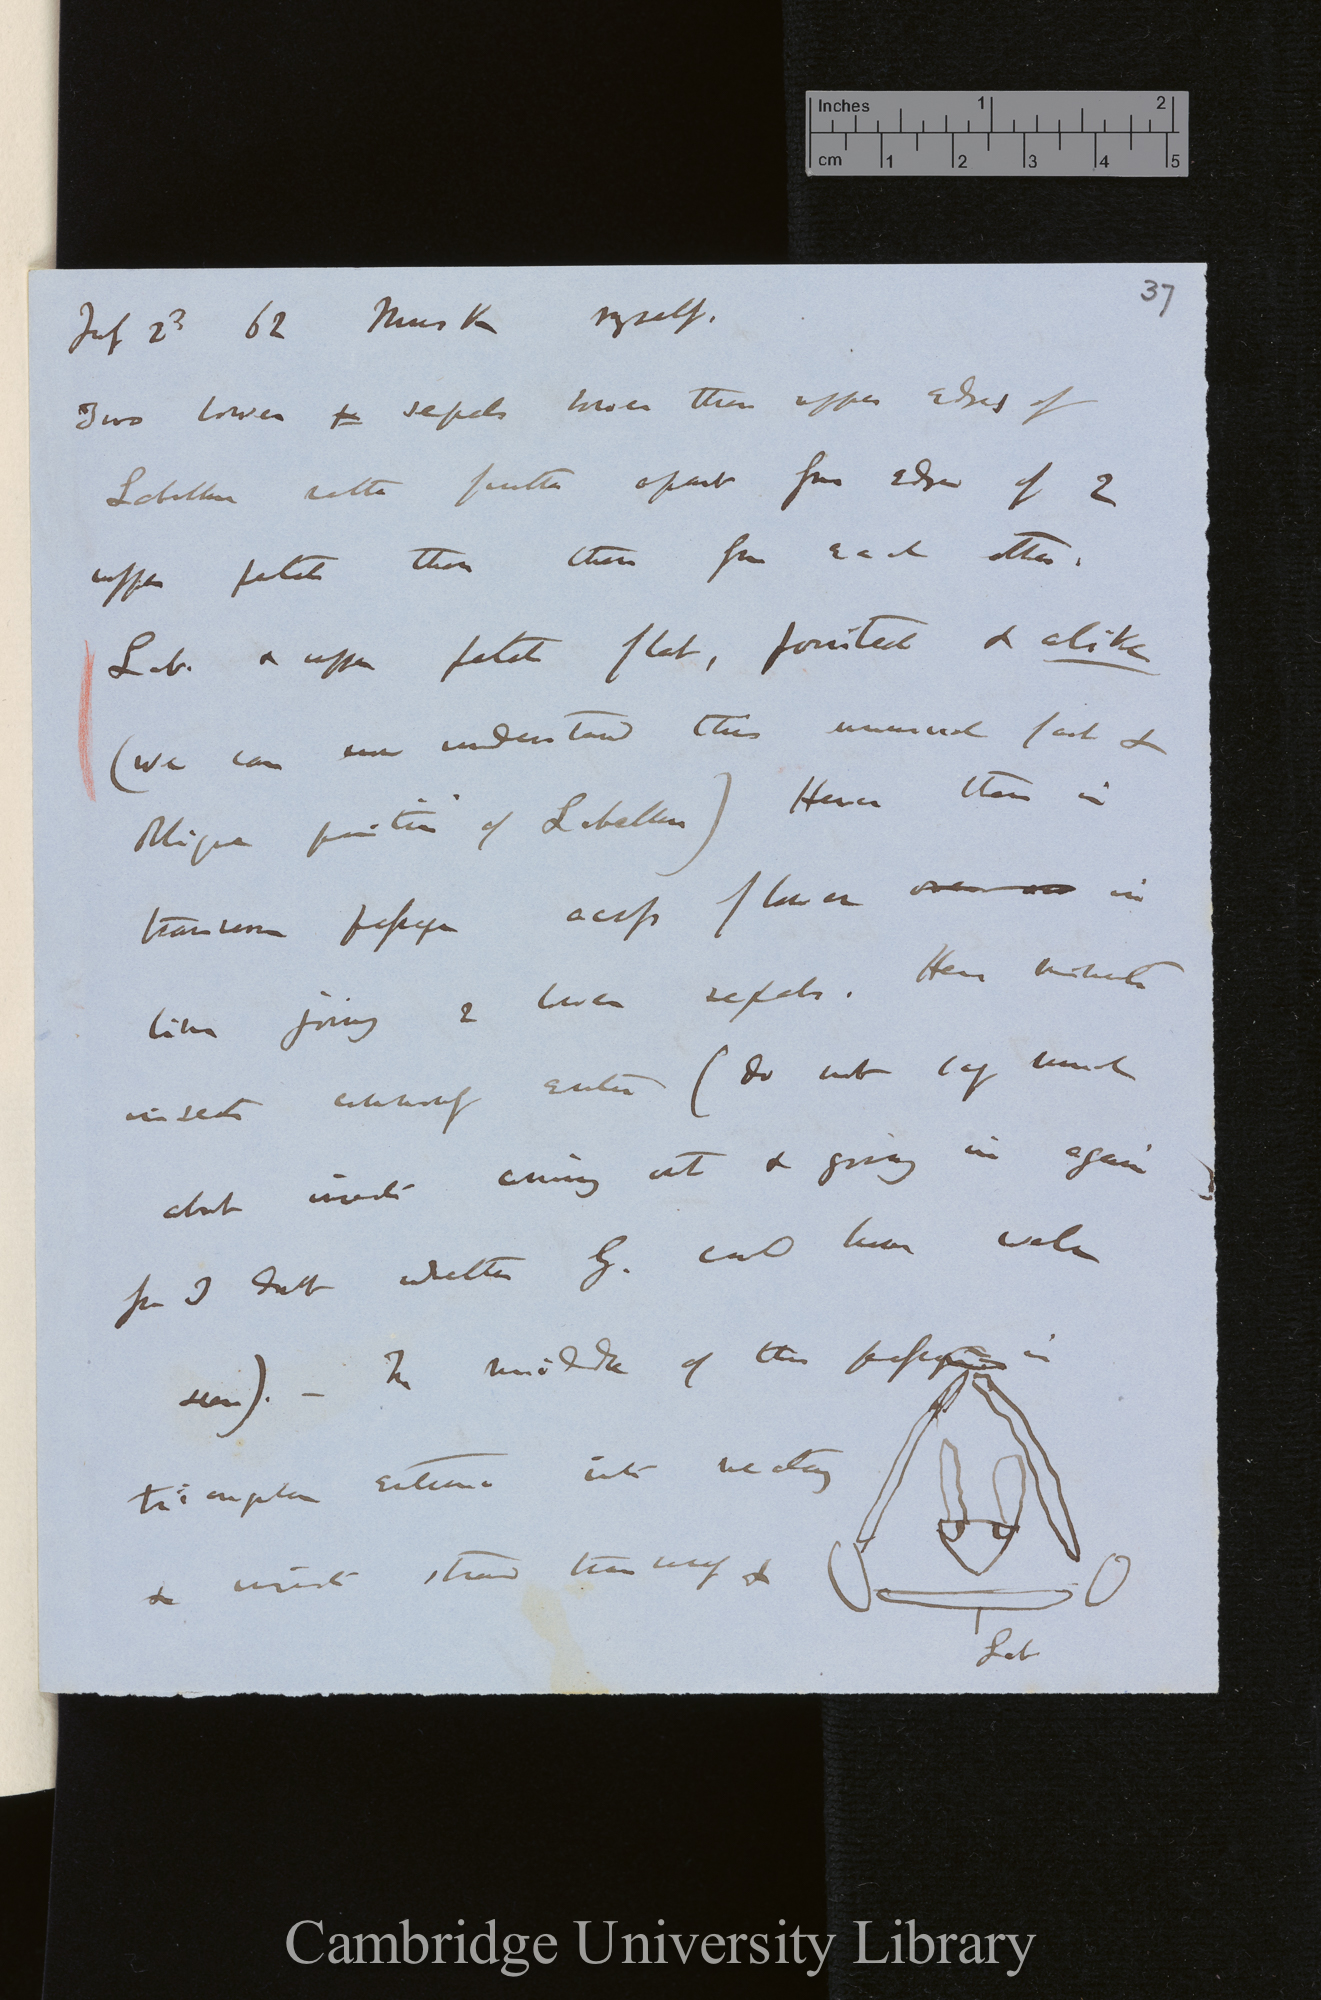 Inches 1 2
cm 1 2 3 4 5
37
July 23 62 Musk myself.
Two lower sepals lower than upper edges of
Labellum rather further apart from edges of 2
upper petals than these from each other.
Lab. & upper petals flat, pointed & alike
(we can now understand this unusual fact &
oblique position of Labellum) Hence there is
transverse passage across flower in
line joining 2 lower sepals. Here minute
insects commonly enter (do not say much
about insects coming out & going in again
for I doubt whether G. could have well
seen). — In middle of this passage is
triangular entrance into nectary
& insects stand transversely &
Lab